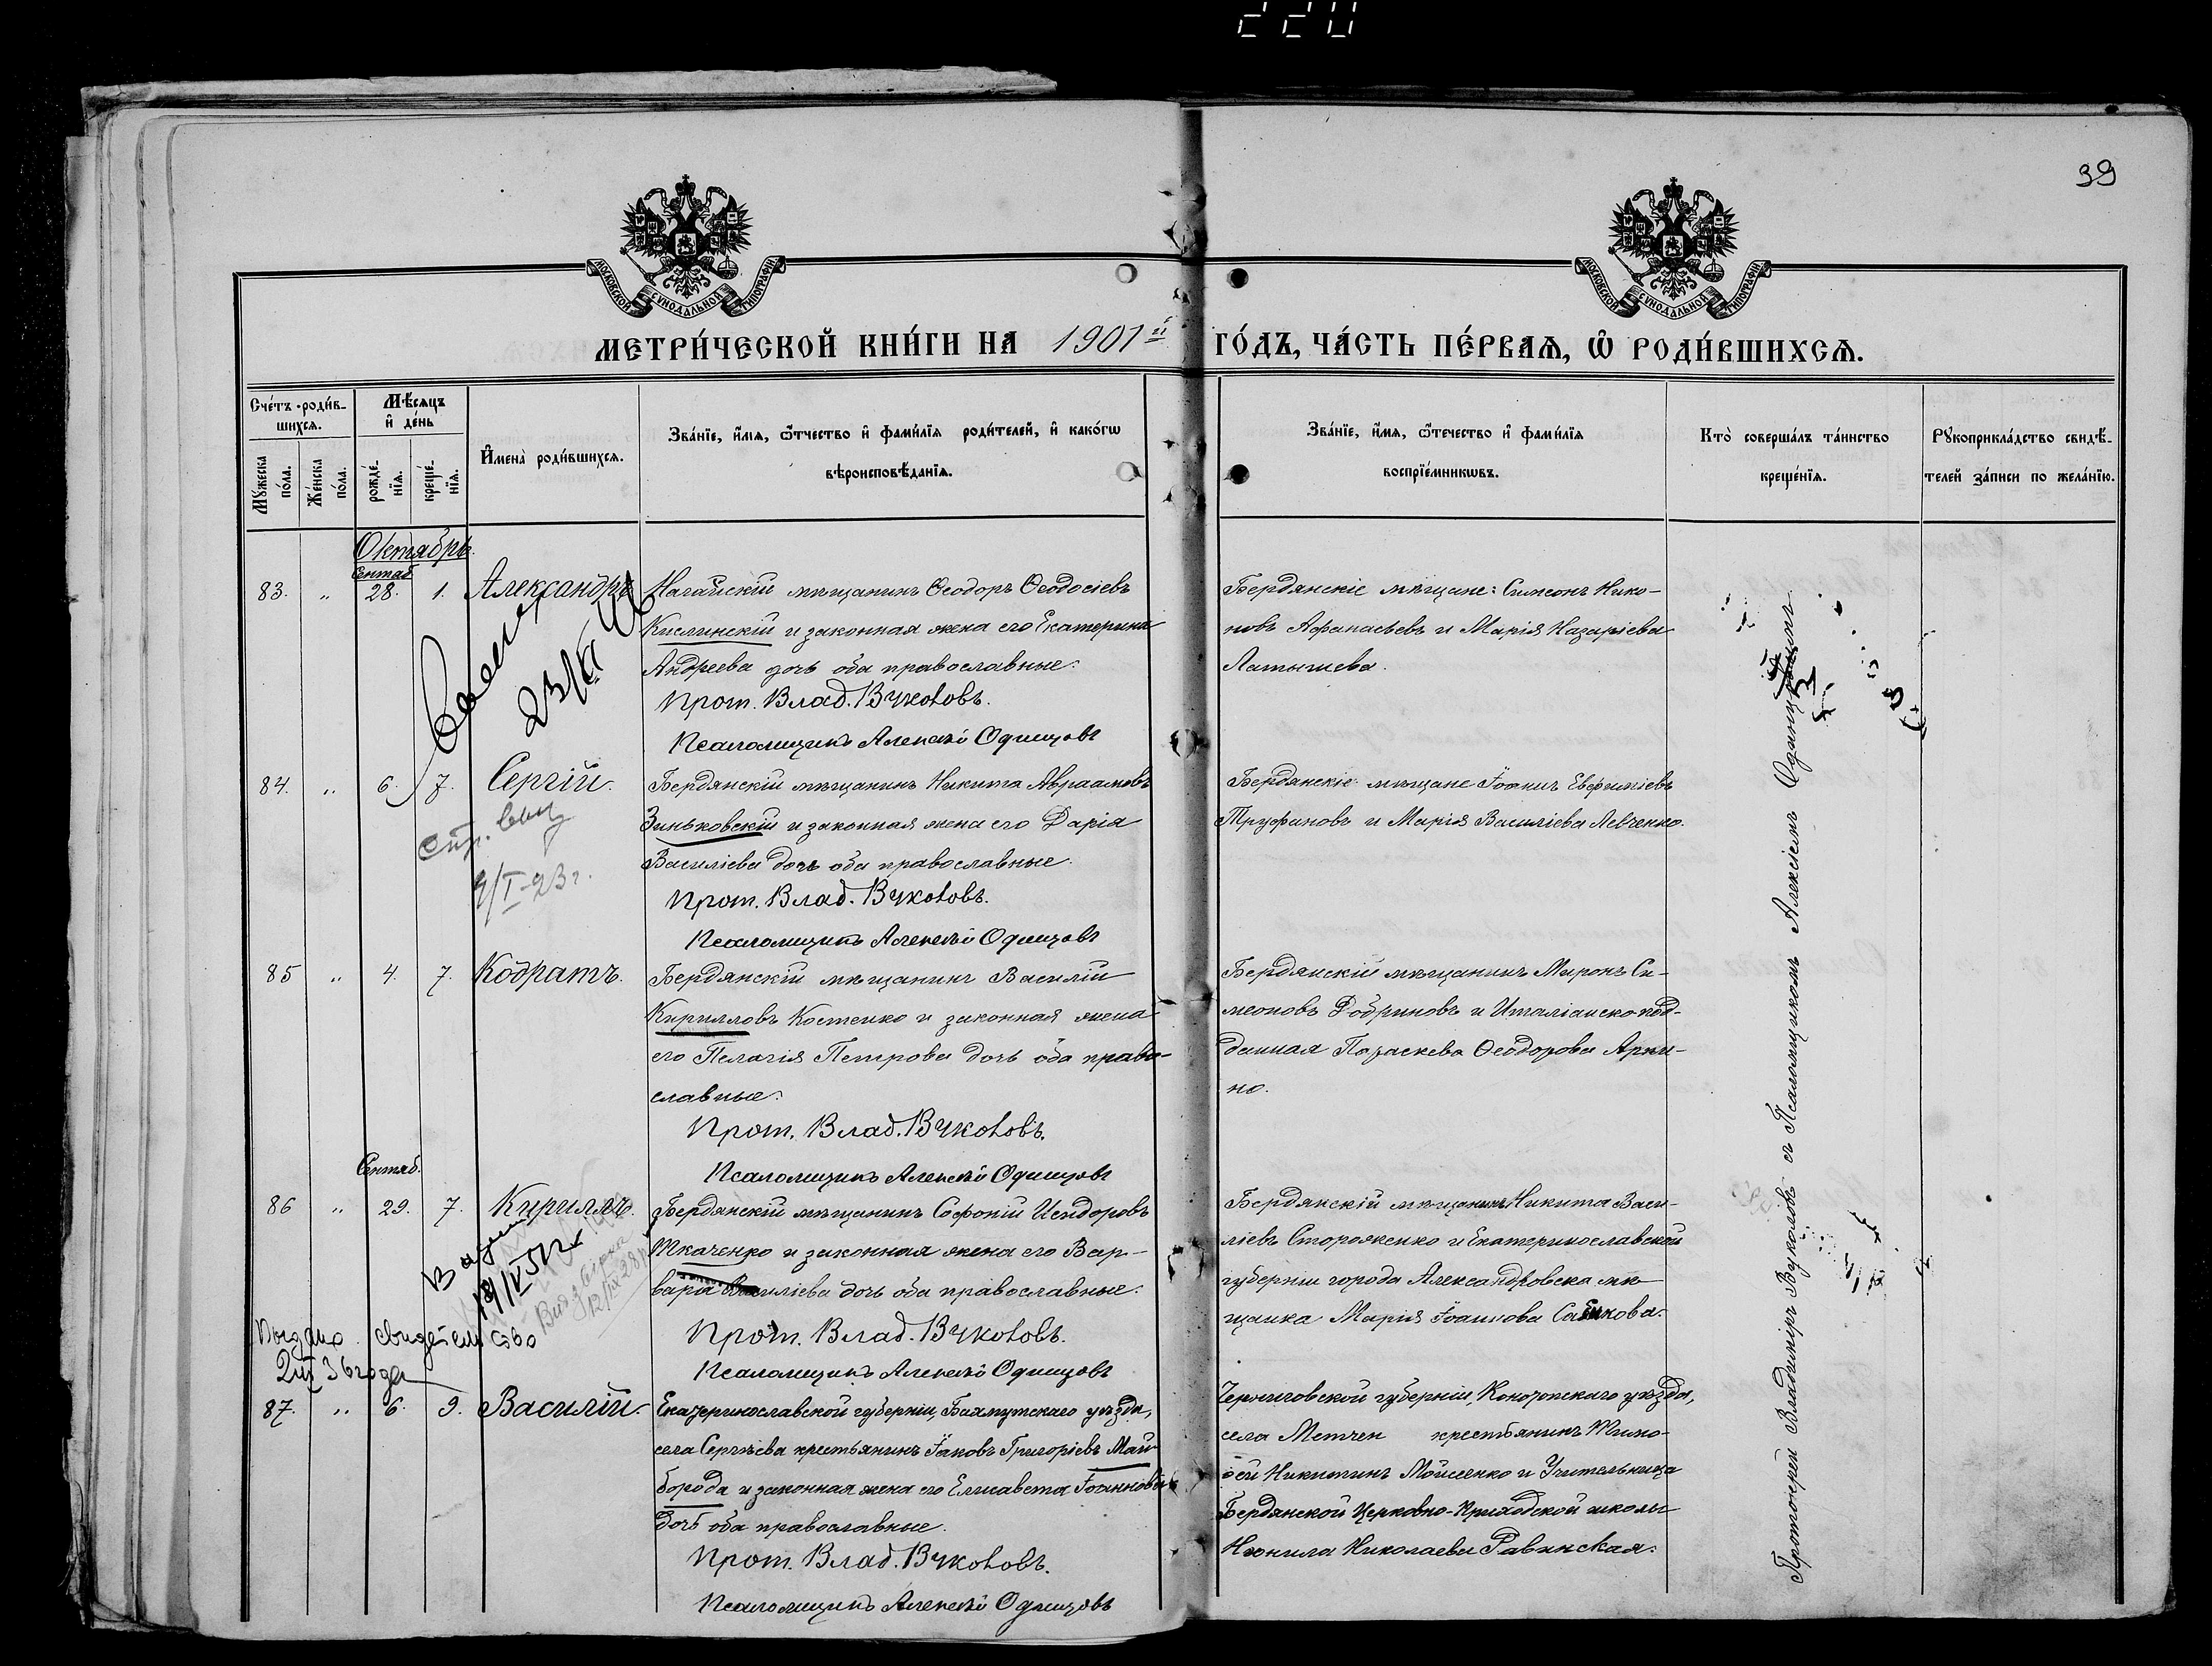 220
39
МОСКОВСКОЙ СѴНОДАЛЬНОЙ ТИПОГРАФІИ
МОСКОВСКОЙ СѴНОДАЛЬНОЙ ТИПОГРАФІИ
МЕТРИ́ЧЕСКОЙ КНИ́ГИ НА 1901й ГО́ДЪ, ЧА́СТЬ ПЕ́РВАѦ, Ѡ҆ РОДИ́ВШИХСѦ.
Сче́тъ роди́в-
шихсѧ.
Мѣ́сѧцъ
и҆ де́нь
Мꙋ́жеска
по́ла.
Же́нска
по́ла.
рожде́-
нїѧ.
креще́-
нїѧ.
И҆мена̀ роди́вшихсѧ.
Зва́нїе, и҆́мѧ, ѻ҆́тчество и҆ фами́лїѧ роди́телей, и҆ како́гѡ
вѣроисповѣ́данїѧ.
Зва́нїе, и҆́мѧ, ѻ҆те́чество и҆ фами́лїѧ
воспрїе́мникѡвъ.
Кто̀ соверша́лъ та́инство
креще́нїѧ.
Рꙋкоприкла́дство свидѣ́-
телей за́писи по жела́нїю.
Октябрь.
Сентяб
83. " 28. 1. Александръ
Ногайскій мѣщанинъ Ѳеодоръ Ѳеодосіевъ
Кислинскій и законная жена его Екатерина
Андреева дочь оба православные.
Прот. Влад. Вуколовъ.
Псаломщикъ Алексѣй Одинцовъ
Бердянскіе мѣщане: Симеонъ Нико-
новъ Афанасьевъ и Марія Назаріева
Латышева.
84. " 6. 7. Сергій.
стр. выд
9/I-23 г.
Бердянскій мѣщанинъ Никита Авраамовъ
Зиньковскій и законная жена его Дарія
Василіева дочь оба православные.
Прот. Влад. Вуколовъ.
Псаломщикъ Алексѣй Одинцовъ
Бердянскіе мѣщане Іоаннъ Евфиміевъ
Труфановъ и Марія Василіева Левченко.
85 " 4. 7. Кодратъ.
Бердянскій мѣщанинъ Василій
Кирилловъ Костенко и законная жена
его Пелагія Петрова дочь оба право-
славные.
Прот. Влад. Вуколовъ.
Псаломщикъ Алексѣй Одинцовъ
Бердянскій мѣщанинъ Миронъ Си-
меоновъ Добриновъ и Италіанскопод-
данная Параскева Ѳеодорова Арки-
но.
Сентяб.
86 " 29. 7. Кириллъ.
Бердянскій мѣщанинъ Софоній Исидоровъ
Ткаченко и законная жена его Вар-
вара Василіева дочь оба православные.
Прот. Влад. Вуколовъ.
Псаломщикъ Алексѣй Одинцовъ
Бердянскій мѣщанинъ Никита Васи-
ліевъ Стороженко и Екатеринославской
губерніи города Александровска мѣ-
щанка Марія Іоаннова
Выдано свидетельство
36 года
87. " 6. 9. Василій.
Екатеринославской губерніи, Бахмутскаго уѣзда,
села Сергѣева крестьянинъ Іаковъ Григоріевъ Май-
борода и законная жена его Елисавета Іоаннова
дочь оба православные.
Прот. Влад. Вуколовъ.
Псаломщикъ Алексѣй Одинцовъ
Черниговской губерніи, Конотопскаго уѣзда,
села Метчен крестьянинъ Тимо-
ѳей Никитинъ Мойсеенко и Учительница
Бердянской Церковно-Приходской школы
Неонила Николаева Равинская.
Протоіерей Владиміръ Вуколовъ съ Псаломщикомъ Алексіемъ Одинцовымъ